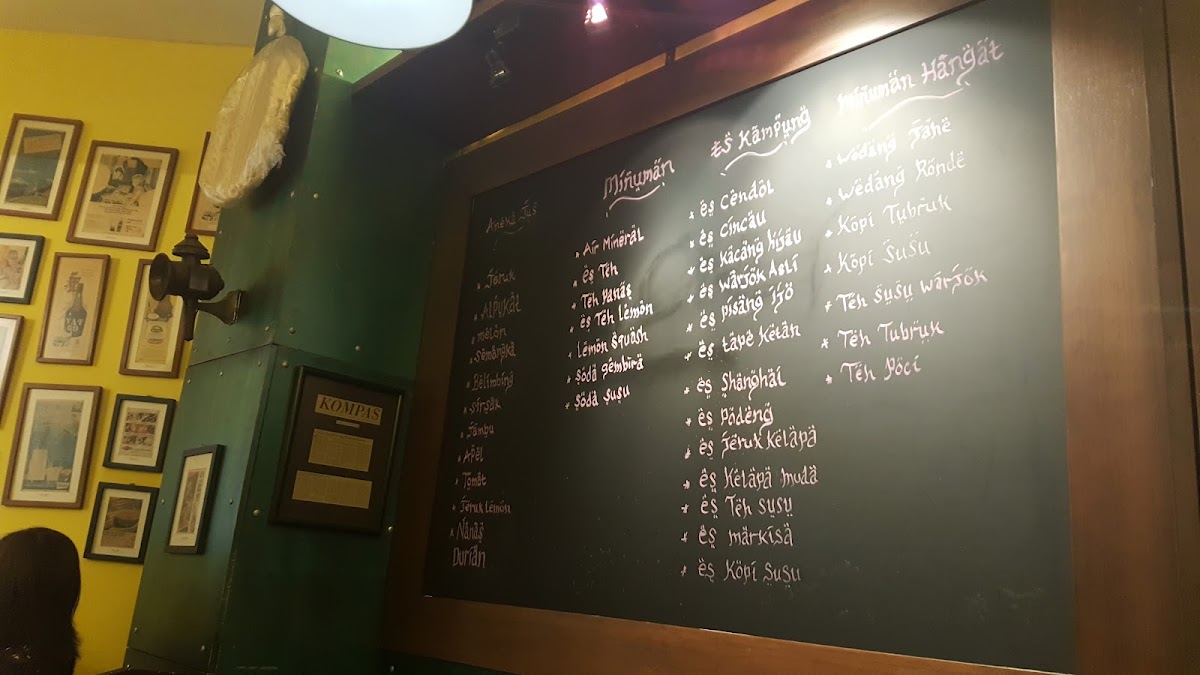 Aneka Jus
Jeruk
Alpukat
melon
Semangka
Belimbing
Sirsak
Jambu
Apel
Tomat
Jeruk Lemon
Nanas
Durian
Minuman
Air Mineral
es Teh
Teh Panas
es Teh Lemon
Lemon Squash
Soda gembira
Soda Susu
Es Kampung
es Cendol
es Cincau
es Kacang hijau
es Warjok Asli
es pisang ijo
es tape Ketan
es Shanghai
es Podeng
es Jeruk Kelapa
es Kelapa muda
es Teh susu
es markisa
es Kopi Susu
Minuman Hangat
Wedang Jahe
Wedang Ronde
Kopi Tubruk
Kopi Susu
Teh Susu Warjok
Teh Tubruk
Teh Poci
KOMPAS